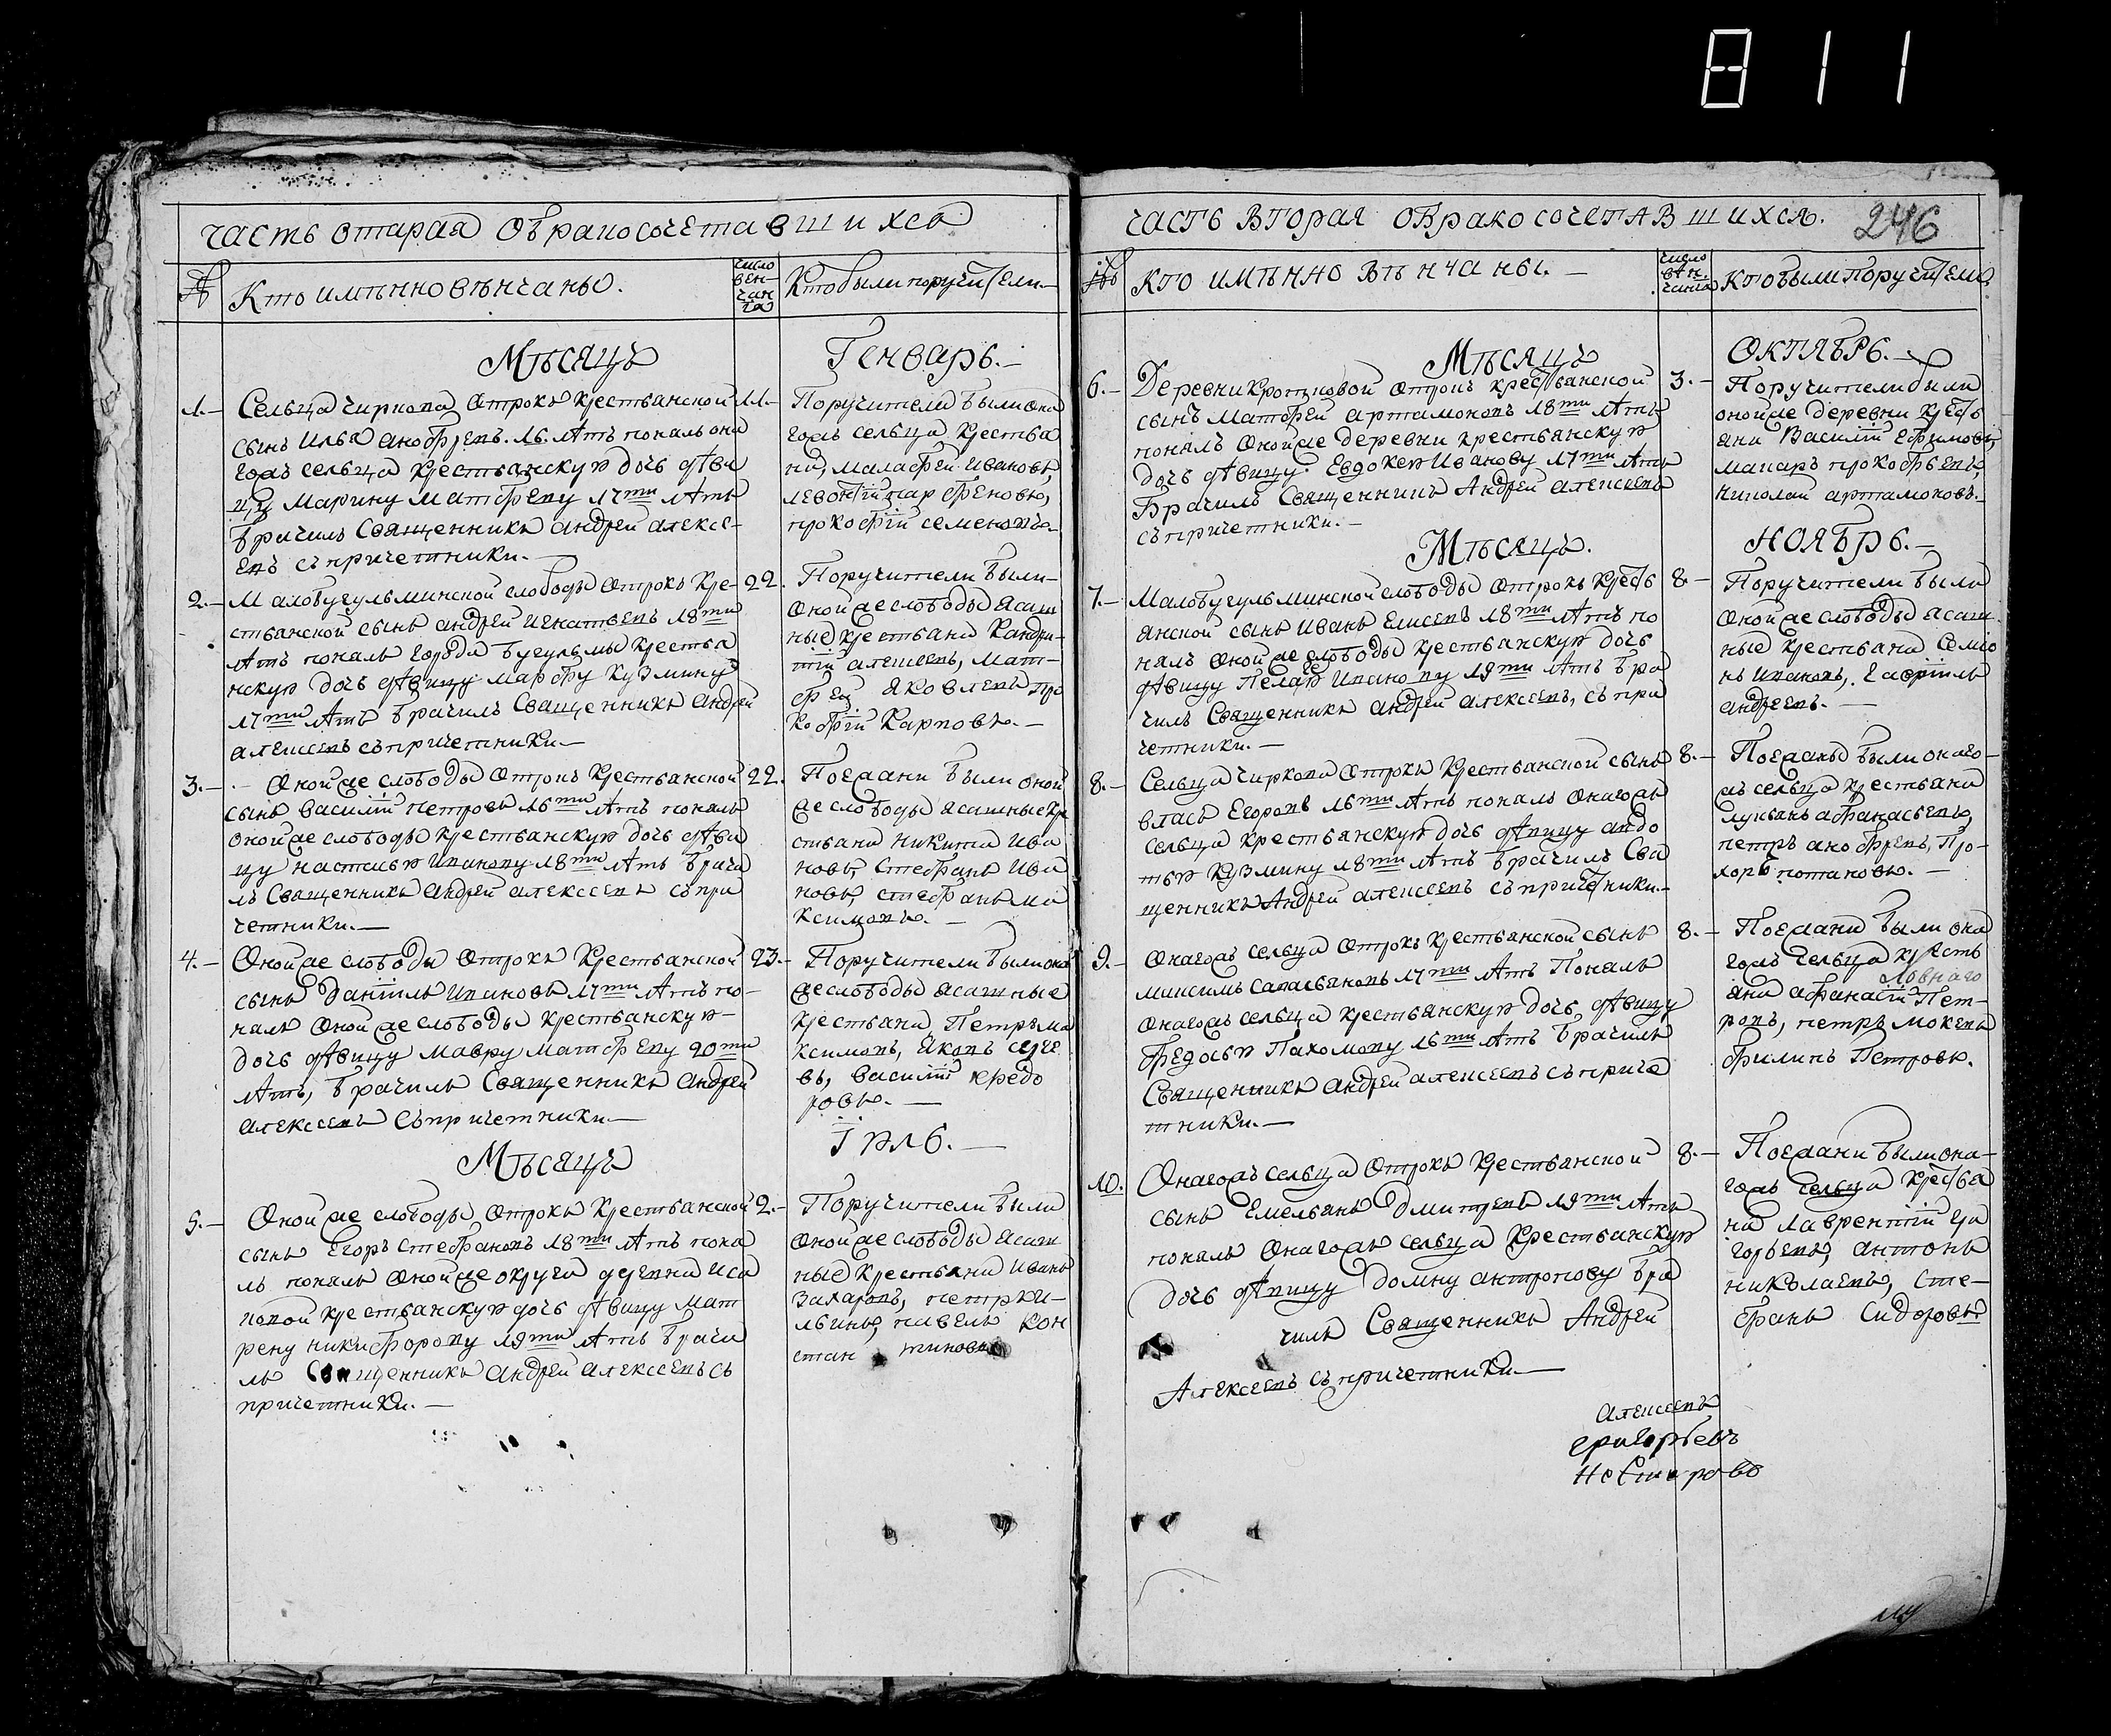 811
часть вторая обракосочетавшихся
№
Кто имянно венчаны.
число
вен-
чан
ія
Кто были поручители.
Мѣсяцъ
Генварь.
1.
Сельца Чиркова отрокъ крестьянской
11.
сынъ Илья Анофревъ 16. лѣтъ понялъ она
гожъ сельца крестьянскую дочь дѣви
цу Марину Матфеву 17ти лѣтъ
брачилъ священникъ Андрей Алексе-
евъ съ причетники.
Поручители были она
гожъ сельца крестья
ни, Малафей Ивановъ,
Левонтій Парфеновъ,
Прокофій Семеновъ
2.
Малобугульминской слободы отрокъ кре-
22.
стьянской сынъ Андрей Игнатьевъ 18ти
лѣтъ понялъ города Бугульмы крестья
нскую дочь дѣвицу Марфу Кузмину
17ти лѣтъ брачилъ священникъ Андрей
Алексеевъ съ причетники
Поручители были
оной же слободы ясаш
ные крестьяни Кондра-
тій Алексеевъ, Мат-
фей Яковлевъ Про
кофій Карповъ.
3.
Оной же слободы отрокъ крестьянской
22.
сынъ Василій Петровъ 16ти лѣтъ понялъ
оной же слободы крестьянскую дочь дѣви
цу Настасью Иванову 18ти лѣтъ брачи
лъ священникъ Андрей Алексеевъ съ при
четники.
Поезжани были оной
же слободы ясашные кре
стьяни Никита Ива
новъ, Стефанъ Ива
новъ, Стефанъ Ма
ксимовъ.
4.
Оной же слободы отрокъ крестьянской
23.
сынъ Даніилъ Ивановъ 17ти лѣтъ по-
нялъ оной же слободы крестьянскую
дочь дѣвицу Мавру Матфеву 20ти
лѣтъ, брачилъ священникъ Андрей
Алексеевъ съ причетники.
Поручители были оной
же слободы ясашные
крестьяни Петръ Ма
ксимовъ, Яковъ Сергее
въ, Василій Федо
ровъ.
Мѣсяцъ
Іюль.
5.
Оной же слободы отрокъ крестьянской
2.
сынъ Егоръ Стефановъ 18ти лѣтъ поня
лъ понялъ оной же округи деревни Иса
ковой крестьянскую дочь дѣвицу Мат
рену Никифорову 19ти лѣтъ брачи
лъ священникъ Андрей Алексеевъ съ
причетники.
Поручители были
оной же слободы ясаш
ные крестьяни Иванъ
Захаровъ, Петръ И-
льинъ, Павелъ Кон
стан тиновъ
часть вторая обракосочетавшихся.
246
№
кто имѣнно вѣнчаны.
число
вѣн-
чания
Кто были поручители
Мѣсяцъ
Октябрь.
6.
Деревни Кротковой отрокъ крестьянской
3.
сынъ Матфей Артамоновъ 18ти лѣтъ
понялъ оной же деревни крестьянскую
дочь дѣвицу Евдокею Иванову 17ти лѣтъ
Брачилъ священникъ Андрей Алексеевъ
съ причетники.
Поручители были
оной же деревни кресть
яни Василій Ефимовъ,
Макаръ Прокофьевъ,
Николай Артамоновъ.
Мѣсяцъ.
Ноябрь.
7.
Малобугульминской слободы отрокъ кресть
8.
янской сынъ Иванъ Елисеевъ 18ти лѣтъ по
нялъ оной же слободы крестьянскую дочь
дѣвицу Пелагею Иванову 19ти лѣтъ бра
чилъ священникъ Андрей Алексеевъ, съ при
четники.
Поручители были
оной же слободы ясаш
ные крестьяни Семіо
нъ Ивановъ, Гаврійлъ
Андреевъ.
8.
Сельца Чиркова отрокъ крестьянской сынъ
8.
Власъ Егоровъ 16ти лѣтъ понялъ онагожъ
сельца крестьянскую дочь дѣвицу Авдо
тью Кузмину 18ти лѣтъ брачилъ свя
щенникъ Андрей Алексеевъ съ причетники.
Поезжаны были онаго-
жъ сельца крестьяни
Лукьянъ Афанасьевъ,
Петръ Анофревъ, Про-
хоръ Потаповъ.
9.
Онагожъ сельца отрокъ крестьянской сынъ
8.
Максимъ Савастьяновъ 17ти лѣтъ понялъ
онагожъ сельца крестьянскую дочь дѣвицу
Федосью Пахомову 16ти лѣтъ брачилъ
священникъ Андрей Алексеевъ съ приче
тники.
Поезжани были она
гожъ сельца кресть
яни Афанасій Пет-
ровъ, Петръ Мокеевъ
Филипъ Петровъ.
10.
Онагожъ сельца отрокъ крестьянской
8.
сынъ Емельянъ Дмитревъ 19ти лѣтъ
понялъ онагожъ сельца крестьянскую
дочь дѣвицу Домну Антропову бра
чилъ священникъ Андрей
Алексеевъ съ причетники.
Поезжани были она-
гожъ сельца крестья
ни Лаврентій Гри
горьевъ, Антонъ
Николаевъ, Сте-
фанъ Сидоровъ
Алексеевъ
Григорьевъ